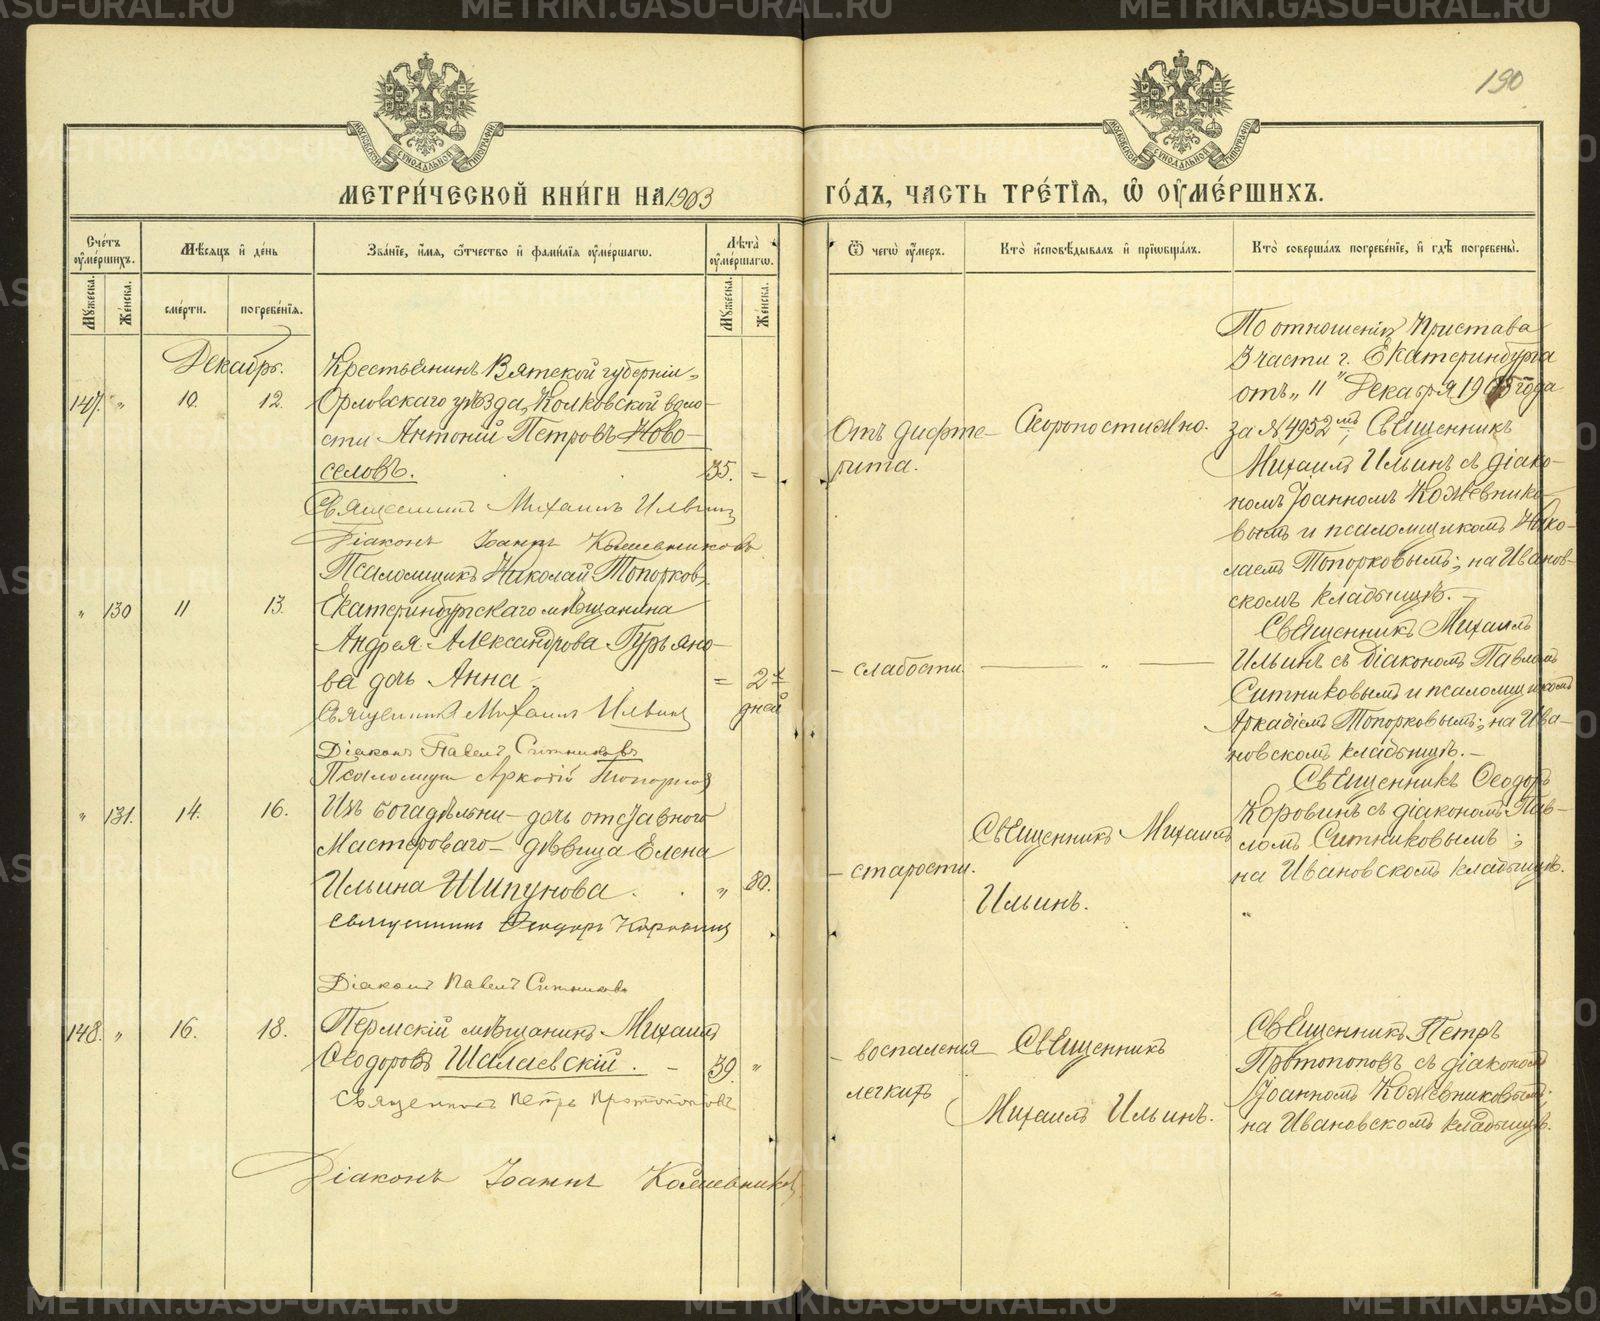 190
МЕТРИ́ЧЕСКОЙ КНИ́ГИ НА 1903
ГО́ДЪ, ЧАСТЬ ТРЕ́ТІѦ, Ѡ ОУМЕ́РШИХЪ.
Сче́тъ оуме́ршихъ.
Мѣ́сяцъ и де́нь
Зва́ніе, и́мя, ѻ́тчество и фами́лія оуме́ршагѡ.
Лѣта̀ оуме́ршагѡ.
Ѿ чегѡ̀ оу́меръ.
Кто̀ исповѣ́дывалъ и приѡбща́лъ.
Кто̀ соверша́лъ погребе́ніе, и гдѣ̀ погребены̀.
Му́жеска.
Же́нска.
сме́рти.
погребе́нія.
Му́жеска.
Же́нска.
Декабрь.
147. " 10. 12.
Крестьянинъ Вятской губерніи,
Орловскаго уѣзда, Колковской воло-
сти Антоній Петровъ Ново-
селовъ. 35. =
Священникъ Михаилъ Ильинъ
Діаконъ Іоаннъ Кожевниковъ
Псаломщикъ Николай Топорковъ
Отъ дифте-
рита.
Скоропостижно.
По отношенію Пристава
3 части г. Екатеринбурга
отъ „11" Декабря 1903 года
за № 4952мъ; Священникъ
Михаилъ Ильинъ съ діако-
номъ Іоанномъ Кожевнико-
вымъ и псаломщикомъ Нико-
лаемъ Топорковымъ; на Иванов-
скомъ кладбищѣ. —
" 130 11 13.
Екатеринбургскаго мѣщанина
Андрея Александрова Гурьяно-
ва дочь Анна. = 2хъ
дней
Священникъ Михаилъ Ильинъ
Діаконъ Павелъ Ситниковъ
Псаломщикъ Аркадій Топорковъ
— слабости. — " —
Священникъ Михаилъ
Ильинъ съ діакономъ Павломъ
Ситниковымъ и псаломщикомъ
Аркадіемъ Топорковымъ; на Ива-
новскомъ кладбищѣ. —
" 131. 14. 16.
Изъ богадѣльни — дочь отставного
Мастероваго — дѣвица Елена
Ильина Шипунова. " 80.
Священникъ Ѳеодоръ Коровинъ
Діаконъ Павелъ Ситниковъ
— старости.
Священникъ Михаилъ
Ильинъ.
Священникъ Ѳеодоръ
Коровинъ съ діакономъ Пав-
ломъ Ситниковымъ;
на Ивановскомъ кладбищѣ.
"
148. " 16. 18.
Пермскій мѣщанинъ Михаилъ
Ѳеодоровъ Шалаевскій. — 39. "
Священникъ Петръ Протопоповъ
Діаконъ Іоаннъ Кожевниковъ
— воспаленія
легкихъ
Священникъ
Михаилъ Ильинъ.
Священникъ Петръ
Протопоповъ съ діакономъ
Іоанномъ Кожевниковымъ;
на Ивановскомъ кладбищѣ.
METRIKI.GASO-URAL.RU